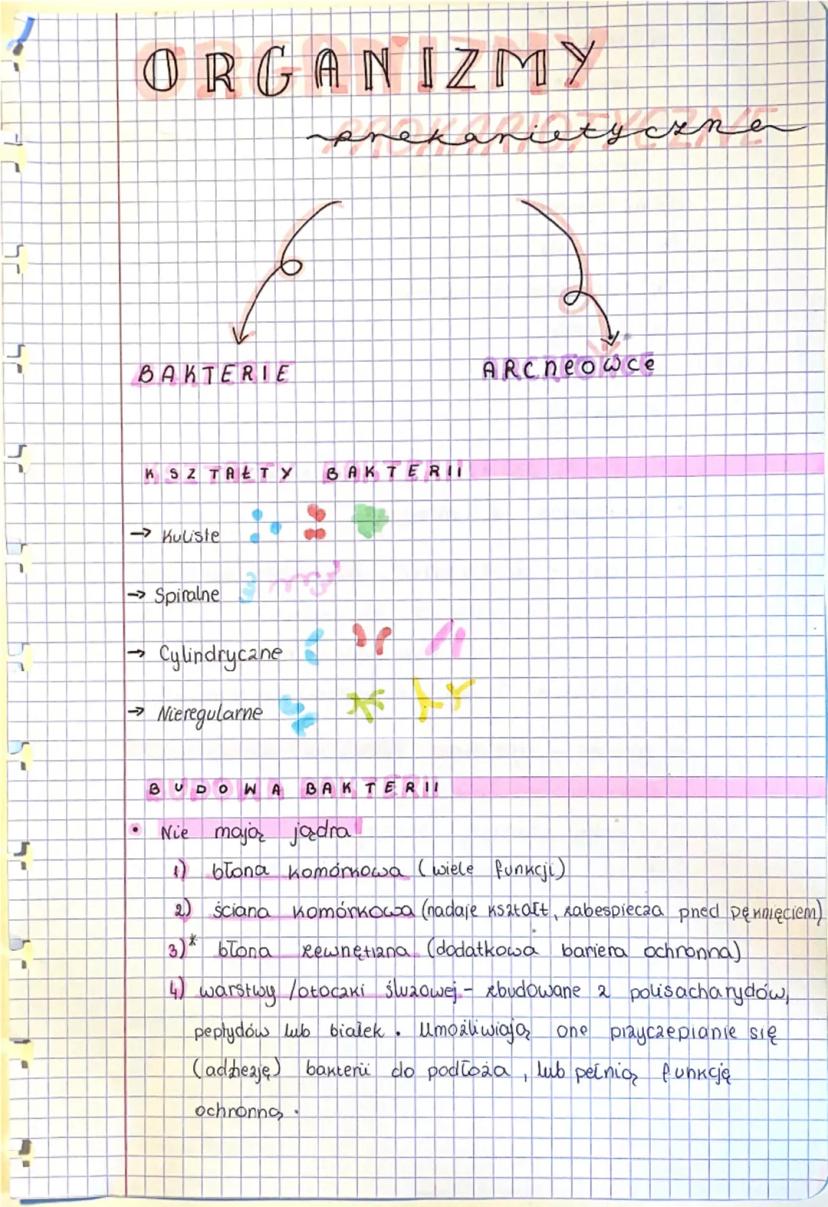 ORGANIZMY
prokariotyczne
PROKARIOTYCZNE
BAKTERIE
ARCHEOWCE
KSZTAŁTY BAKTERII
→ Kuliste
→ Spiralne
→ Cylindryczne
→ Nieregularne
BUDOWA BAKTERII
• Nie mają jądra
1) błona komórkowa (wiele funkcji)
2) ściana komórkowa (nadaje kształt, zabespiecza przed pęknięciem)
3)* błona zewnętrzna (dodatkowa bariera ochronna)
4) warstwy /otoczki śluzowej - zbudowane z polisacharydów,
peptydów lub białek. Umożliwiają one przyczepianie się
(adhezję) bakterii do podłoża, lub pełnią funkcję
ochronną.